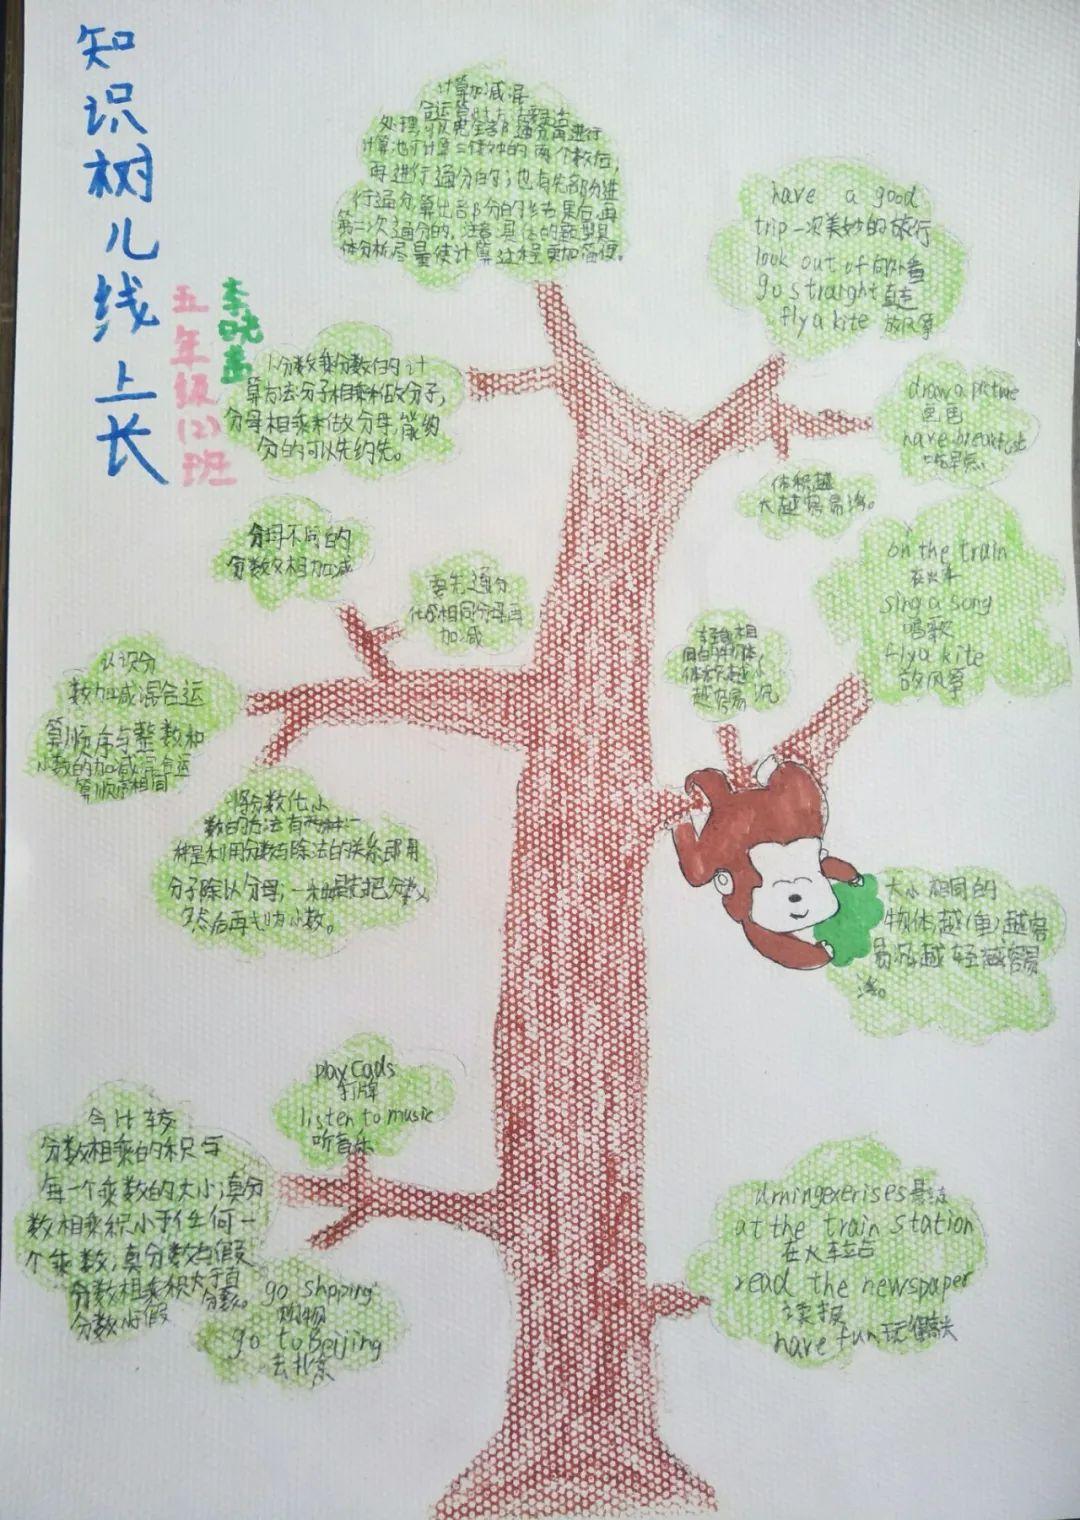 知识树儿线上长
五年级(2)班
李
计算加减混
合运算时
处理可以先全部通分再进行
计算也可计算的两个数后,
再进行通分的;也有先部分进
行通分,算出部分的结果后,再
第二次通分的。注意具体的题型具
体分析尽量使计算过程更加简便。
have a good
trip 一次美妙的旅行
look out of 向外看
go straight 直走
fly a kite 放风筝
1、分数乘分数的计
算方法分子相乘积做分子,
分母相乘积做分母,能约
分的可以先约先。
draw a picture
画画
have breakfast
吃早点
体积越
大越容易浮。
分母不同的
分数相加减
要先通分
化成相同分母再
加减
on the train
在火车
sing a song
唱歌
fly a kite
放风筝
轻重相
同的物体,
体积越小
越容易沉
认识分
数加减混合运
算顺序与整数和
小数的加减混合运
算顺序相同
将分数化小
数的方法有两种:一
种是利用分数与除法的关系即用
分子除以分母;一种是先把分数
然后再小数。
大小相同的
物体越(重)越容
易沉越轻越容易
浮。
play cads
打牌
listen to music
听音乐
会比较
分数相乘的积与
每一个乘数的大小;真分
数相乘积小于任何一
个乘数;真分数与假
分数相乘积大于真
分数。
分数小假
go shpping
购物
go to Beijing
去北京
at the train station
在火车站
read the newspaper
读报
have fun 玩得高兴